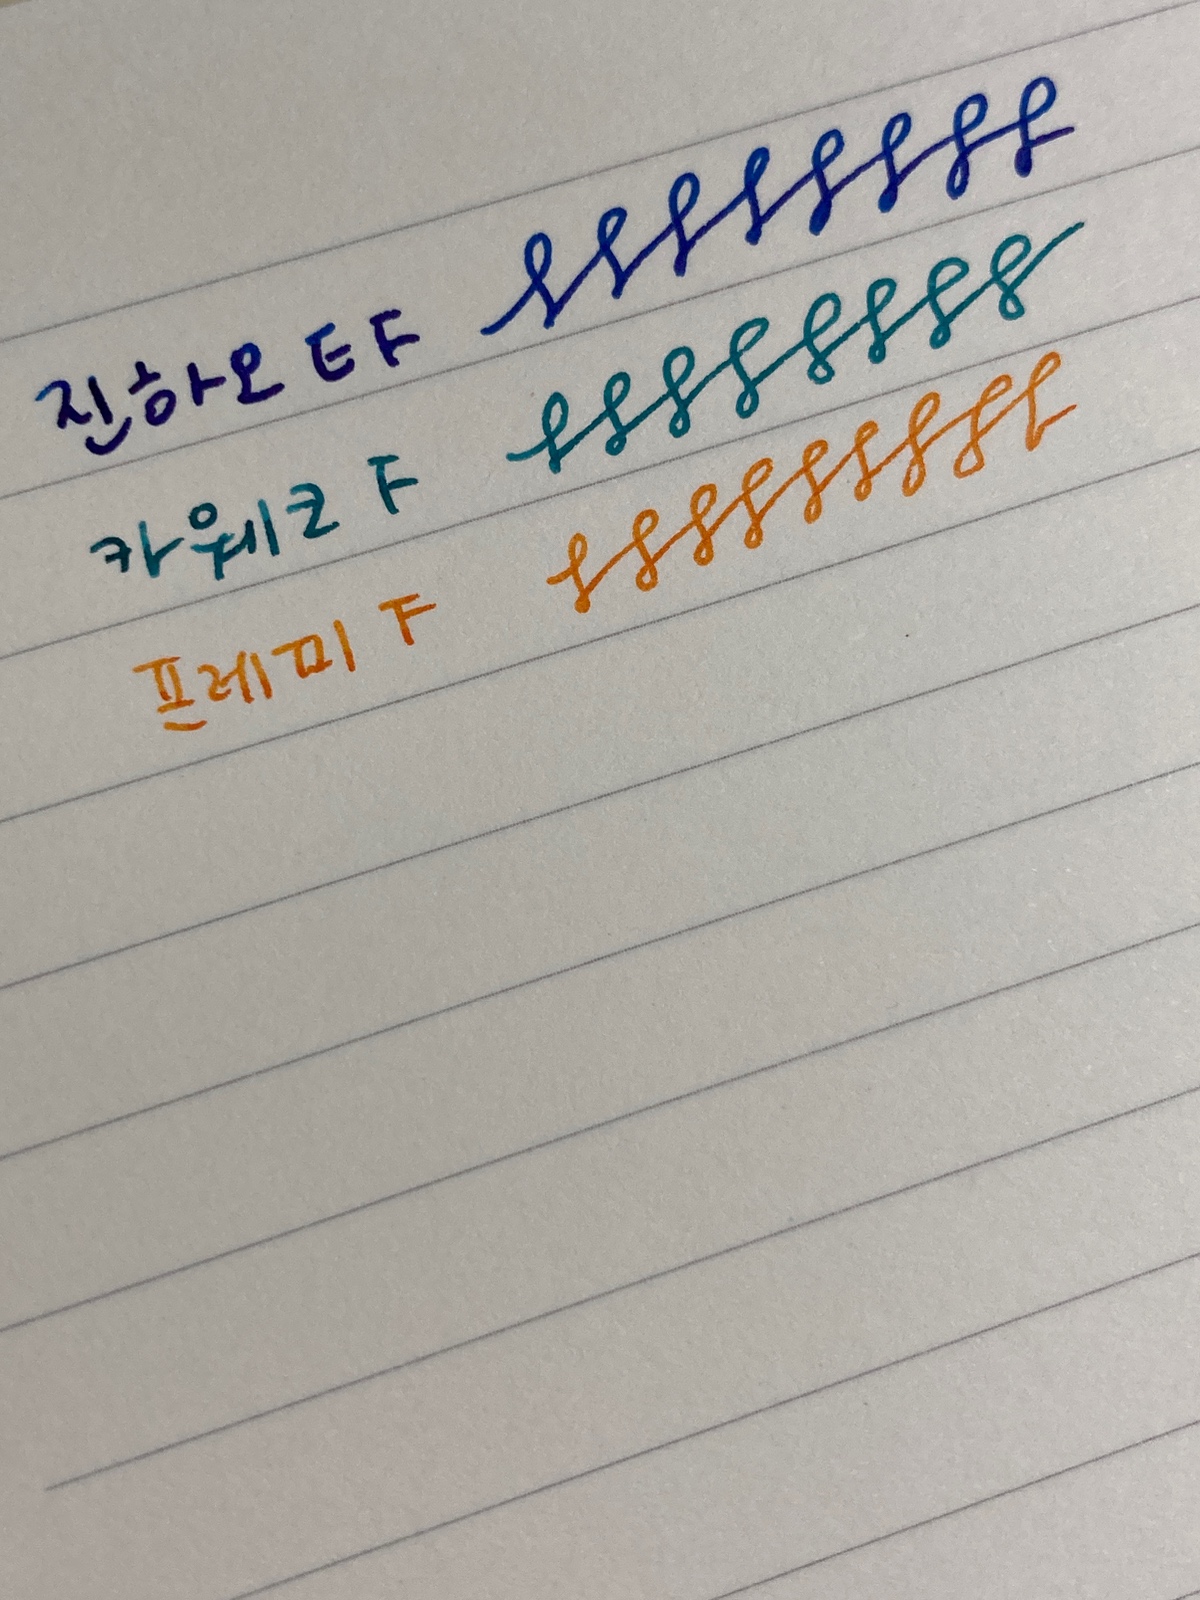 진하오 EF
카웨코 F
프레피 F